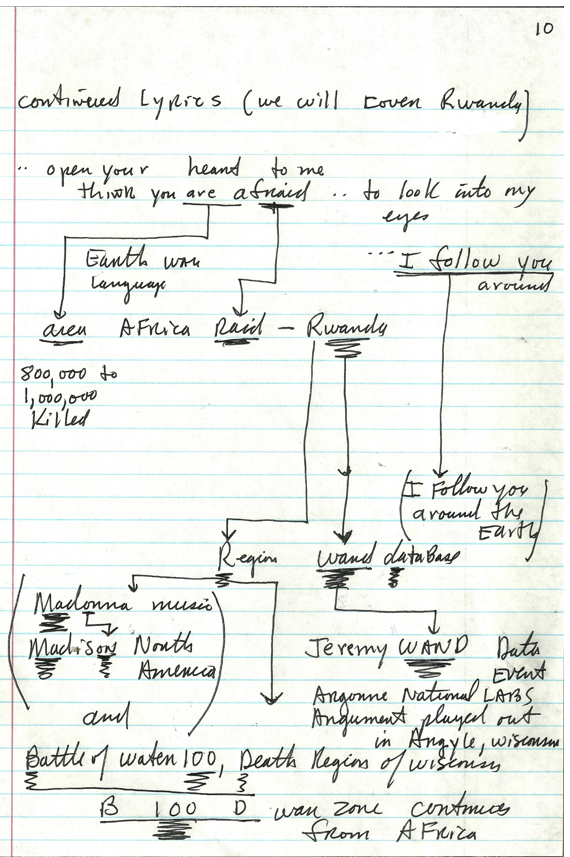 10
continued Lyrics (we will cover Rwanda)
.. open your heart to me
think you are afraid .. to look into my
eyes
Earth war
Language
... I follow you
around
area AFrica Raid - Rwanda
800,000 to
1,000,000
Killed
(I Follow you
around the
Earth)
Region wand dataBase
(Madonna music
Madison North
America)
and
Jeremy WAND Data
Event
Argonne National LABS
Argument played out
in Argyle, Wisconsin
Battle of water 100, Death Region of Wisconsin
B 100 D war zone continues
from AFrica